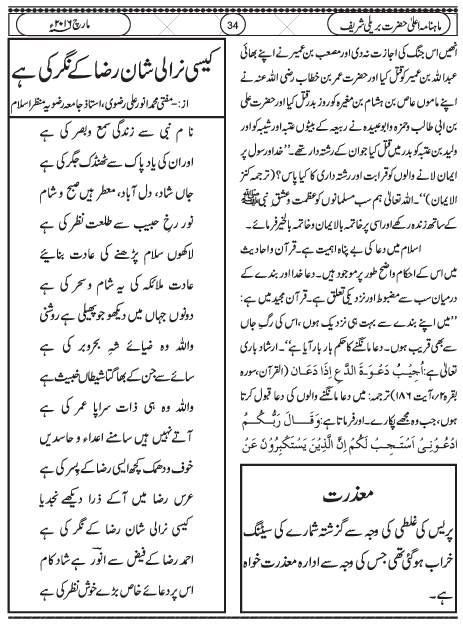 ماہنامہ اعلیٰ حضرت بریلی شریف
34
مارچ ۲۰۱۶ء
انھیں اس جنگ کی اجازت نہ دی اور مصعب بن عمیر نے اپنے بھائی
عبداللہ بن عمیر کو قتل کیا اور حضرت عمر بن خطاب رضی اللہ عنہ نے
اپنے ماموں عاص بن ہشام بن مغیرہ کو روز بدر قتل کیا اور حضرت علی
بن ابی طالب و حمزہ و ابوعبیدہ نے ربیعہ کے بیٹوں عتبہ اور شیبہ کو اور
ولید بن عتبہ کو بدر میں قتل کیا جو ان کے رشتہ دار تھے۔ ’’خدا اور رسول پر
ایمان لانے والوں کو قرابت اور رشتہ داری کا کیا پاس؟ (ترجمہ کنز
الایمان)‘‘۔ اللہ تعالیٰ ہم سب مسلمانوں کو عظمت و عشق نبی ﷺ
کے ساتھ زندہ رکھے اور اسی پر خاتمہ بالایمان و خاتمہ بالخیر فرمائے۔
اسلام میں دعا کی بے پناہ اہمیت ہے۔ قرآن و احادیث
میں اس کے احکام واضح طور پر موجود ہیں۔ دعا خدا اور بندے کے
درمیان سب سے مضبوط اور نزدیکی تعلق ہے۔ قرآن مجید میں ہے:
’’میں اپنے بندے سے بہت ہی نزدیک ہوں، اس کی رگِ جاں
سے بھی قریب ہوں۔ دعا مانگنے کا حکم بار بار آیا ہے‘‘۔ ارشاد باری
تعالیٰ ہے: اُجِیْبُ دَعْوَۃَ الدَّاعِ اِذَا دَعَانِ (القرآن، سورہ
بقرہ ۲؍، آیت ۱۸۶) ترجمہ: میں دعا مانگنے والوں کی دعا قبول کرتا
ہوں، جب وہ مجھے پکارے۔ اور فرماتا ہے: وَقَالَ رَبُّکُمُ
ادْعُوْنِیْ اَسْتَجِبْ لَکُمْ اِنَّ الَّذِیْنَ یَسْتَکْبِرُوْنَ عَنْ
معذرت
پریس کی غلطی کی وجہ سے گزشتہ شمارے کی سیٹنگ
خراب ہوگئی تھی جس کی وجہ سے ادارہ معذرت خواہ
ہے۔
کیسی نرالی شان رضا کے نگر کی ہے
از:۔ مفتی محمد انور علی رضوی، استاذ جامعہ رضویہ منظر اسلام
نام نبی سے زندگی سمع و بصر کی ہے
اور ان کی یاد پاک سے ٹھنڈک جگر کی ہے
جاں شاد، دل آباد، معطر ہیں صبح و شام
نور رخِ حبیب سے طلعت نظر کی ہے
لاکھوں سلام پڑھنے کی عادت بنائیے
عادت ملائکہ کی یہ شام و سحر کی ہے
دونوں جہاں میں دیکھو جو پھیلی ہے روشنی
واللہ وہ ضیائے شہِ بحر و بر کی ہے
سائے سے جن کے بھاگتا شیطاں خبیث ہے
واللہ وہ ہی ذات سراپا عمر کی ہے
آتے نہیں ہیں سامنے اعداء و حاسدیں
خوف و دھمک کچھ ایسی رضا کے پسر کی ہے
عرس رضا میں آ کے ذرا دیکھے نجدیا
کیسی نرالی شان رضا کے نگر کی ہے
احمد رضا کے فیض سے انورؔ ہے شاد کام
اس پر دعائے خاص بڑے خوش نظر کی ہے